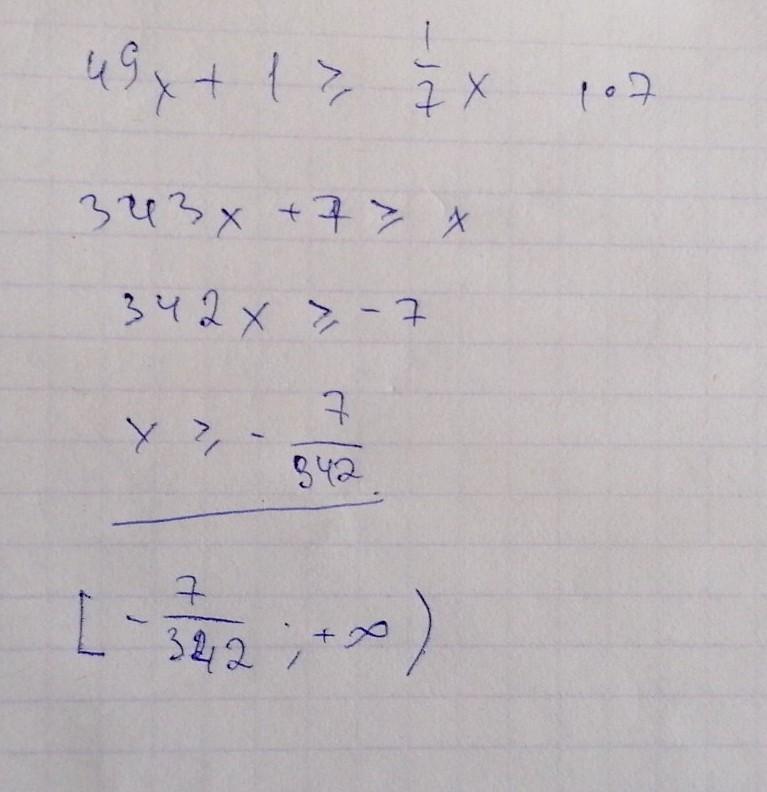 49x + 1 ≥ 1/7 x |∘7
343x + 7 ≥ x
342x ≥ -7
x ≥ - 7/342
[ - 7/342 ; +∞ )